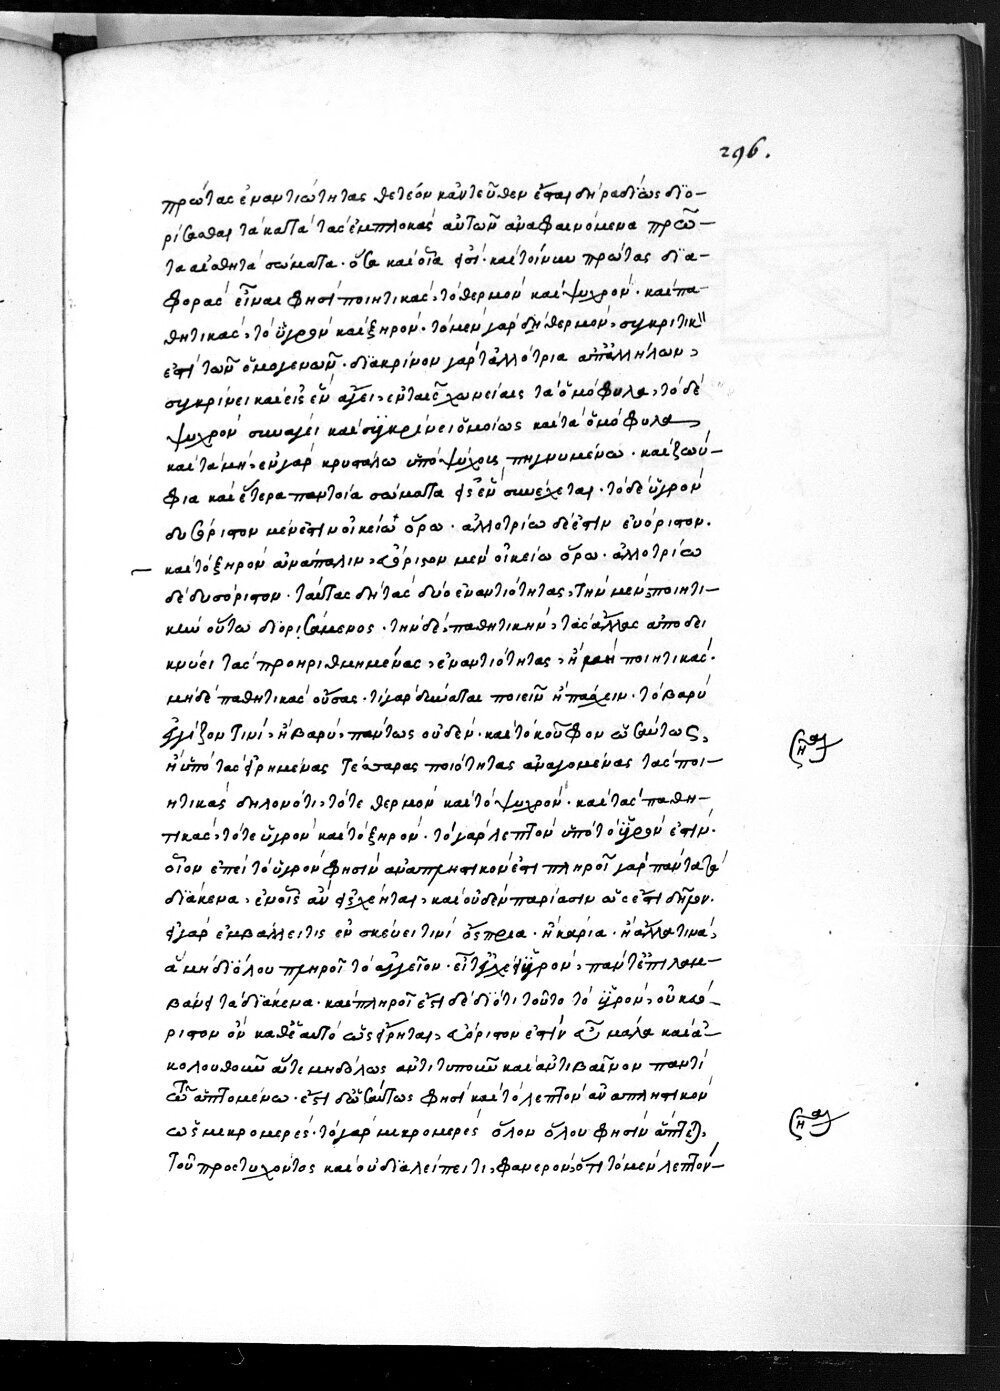 296.
πρώτας ἐναντιότητας θετέον κἀντεῦθεν ἔσται δὴ ῥαδίως διο-
ρίσασθαι τὰ κατὰ τὰς ἐμπλοκὰς αὐτῶν ἀναφαινόμενα πρῶ-
τα αἰσθητὰ σώματα. ὅσα καὶ οἷα ἐστί. καὶ τοίνυν πρώτας δια-
φορὰς εἶναι φησὶ ποιητικὰς, τὸ θερμὸν καὶ ψυχρόν. καὶ πα-
θητικὰς, τὸ ὑγρὸν καὶ ξηρόν. τὸ μὲν γὰρ δὴ θερμὸν, συγκριτικ
ἐστὶ τῶν ὁμογενῶν. διακρίνον γὰρ τἀλλότρια ἀπἀλλήλων,
συγκρίνει καὶ εἰς ἓν ἄγει, ἐν ταῖς χωνείαις τὰ ὁμόφυλα, τὸ δὲ
ψυχρὸν συνάγει καὶ συγκρίνει ὁμοίως καὶ τὰ ὁμόφυλα,
καὶ τὰ μὴ, ἐν γὰρ κρυστάλω ὑπὸ ψύχους πηγνυμένω. καὶ ζωύ-
φια καὶ ἕτερα παντοῖα σώματα εἰς ἓν συνέχεται. τὸ δὲ ὑγρὸν
δυσόριστον μέν ἐστιν οἰκείω ὅρω. ἀλλοτρίω δέ ἐστιν εὐόριστον.
καὶ τὸ ξηρὸν ἀνάπαλιν, εὐόριστον μὲν οἰκείω ὅρω. ἀλλοτρίω
δὲ δυσόριστον. ταύτας δὴ τὰς δύο ἐναντιότητας, τὴν μὲν ποιητι-
κὴν οὕτω διορισάμενος. τὴν δὲ, παθητικὴν, τὰς ἄλλας ἀποδει
κνύει τὰς προηριθμημένας, ἐναντιότητας, ἢ μὴ ποιητικάς.
μηδὲ παθητικὰς οὔσας. τί γὰρ δύναται ποιεῖν ἢ πάσχειν. τὸ βαρὺ
ἐγγίζον τινὶ, ἢ βαρὺ, πάντως οὐδέν. καὶ τὸ κοῦφον ὡσαύτως,
ἢ ὑπὸ τὰς εἰρημένας τέσσαρας ποιότητας ἀναγομένας τὰς ποι-
ητικὰς δηλονότι, τό τε θερμὸν καὶ τὸ ψυχρόν. καὶ τὰς παθη-
τικὰς, τό τε ὑγρὸν καὶ τὸ ξηρόν. τὸ γὰρ λεπτὸν ὑπὸ τὸ ὑγρόν ἐστιν.
οἷον ἐπεὶ τὸ ὑγρὸν φησὶν ἀναπληστικόν ἐστι πληροῖ γὰρ πάντα τὰ
διάκενα, ἐν οἷς ἂν εἰσχέηται, καὶ οὐδὲν παρίασιν ὥς ἐστι δῆλον.
εἰ γὰρ ἐμβάλλει τις ἐν σκεύει τινὶ ὄσπρια. ἢ κάρια. ἢ ἄλλα τινὰ,
ἃ μὴ διόλου πληροῖ τὸ ἀγγεῖον. εἶτ ἐγχεῖ ὑγρὸν, πάντ ἐπιλαμ-
βάνει τὰ διάκενα. καὶ πληροῖ ἐστὶ δὲ διότι τοῦτο τὸ ὑγρὸν, οὐκ ὁ-
ριστὸν ὂν καθἑαυτὸ ὡς εἴρηται, εὐόριστον ἐστὶν εὖ μάλα καὶ ἀ-
κολουθοῦν οὔτε μηδόλως ἀντιτυποῦν καὶ ἀντιβαῖνον παντὶ
τῶ ἁπτομένω. ἔστι δὡσαύτως φησὶ καὶ τὸ λεπτὸν ἀναπληστικὸν
ὡς μικρομερές. τὸ γὰρ μικρομερὲς ὅλον ὅλου φησὶν ἅπτεται,
τοῦ προστυχόντος καὶ οὐ διαλείπει τι, φανερὸν, ὅτι τὸ μὲν λεπτὸν